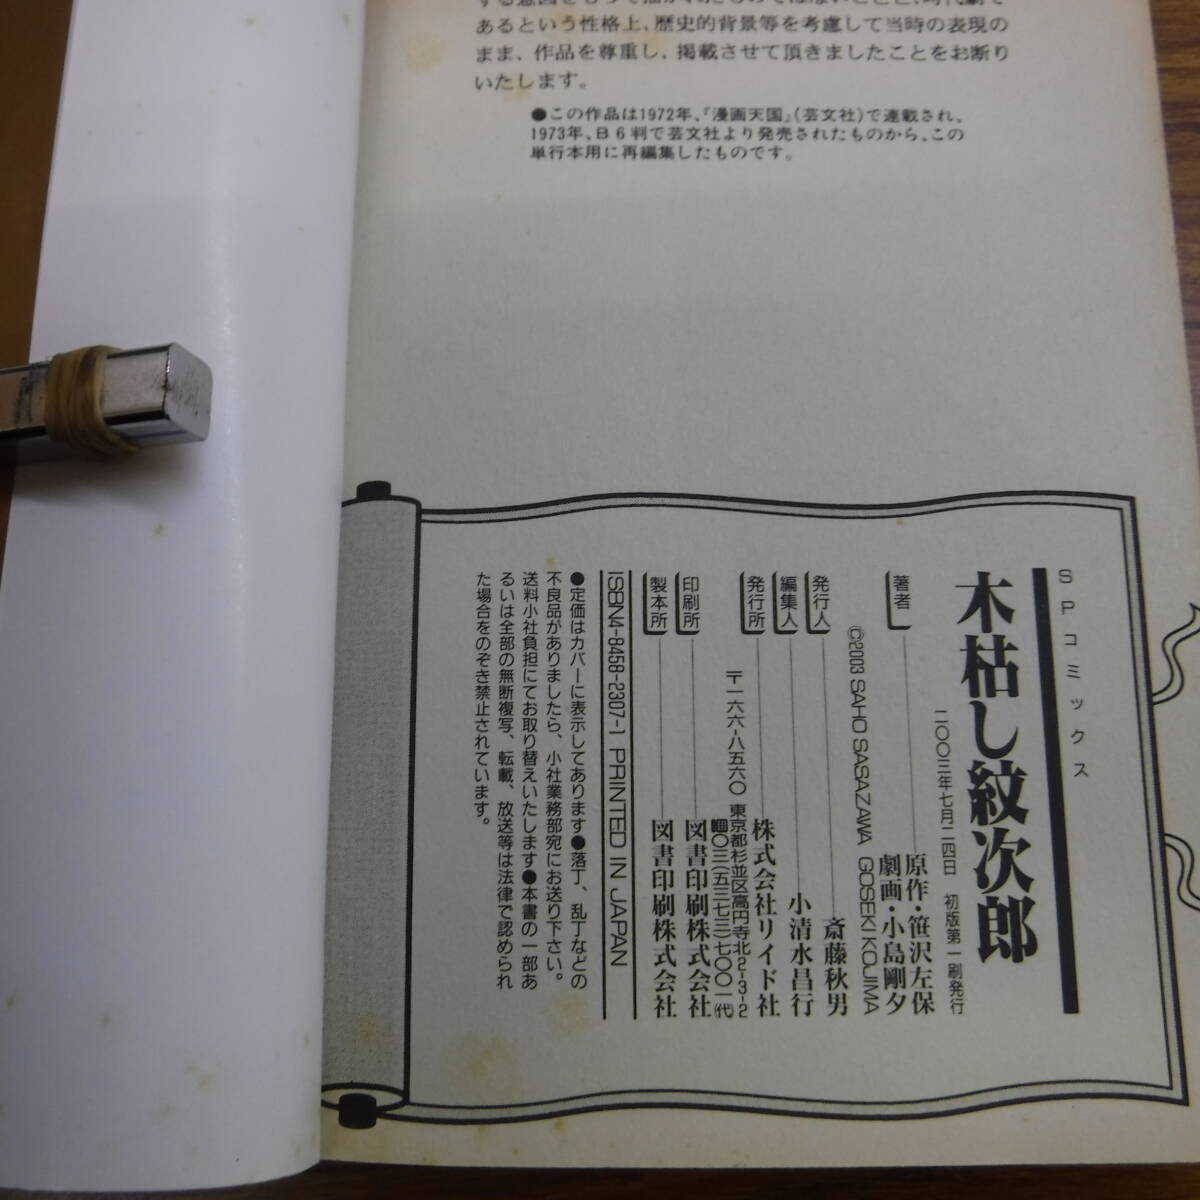 あるという性格上、歴史的背景等を考慮して当時の表現の
まま、作品を尊重し、掲載させて頂きましたことをお断り
いたします。
●この作品は1972年、『漫画天国』(芸文社)で連載され、
1973年、B6判で芸文社より発売されたものから、この
単行本用に再編集したものです。
SPコミックス
木枯し紋次郎
二〇〇三年七月二四日 初版第一刷発行
著者 原作・笹沢左保
劇画・小島剛夕
©2003 SAHO SASAZAWA GOSEKI KOJIMA
発行人 斎藤秋男
編集人 小清水昌行
発行所 株式会社リイド社
〒一六六-八五六〇 東京都杉並区高円寺北2-3-2
〇三(五三七三)七〇〇一(代)
印刷所 図書印刷株式会社
製本所 図書印刷株式会社
ISBN4-8458-2307-1 PRINTED IN JAPAN
●定価はカバーに表示してあります●落丁、乱丁などの
不良品がありましたら、小社業務部宛にお送り下さい。
送料小社負担にてお取り替えいたします●本書の一部あ
るいは全部の無断複写、転載、放送等は法律で認められ
た場合をのぞき禁止されています。